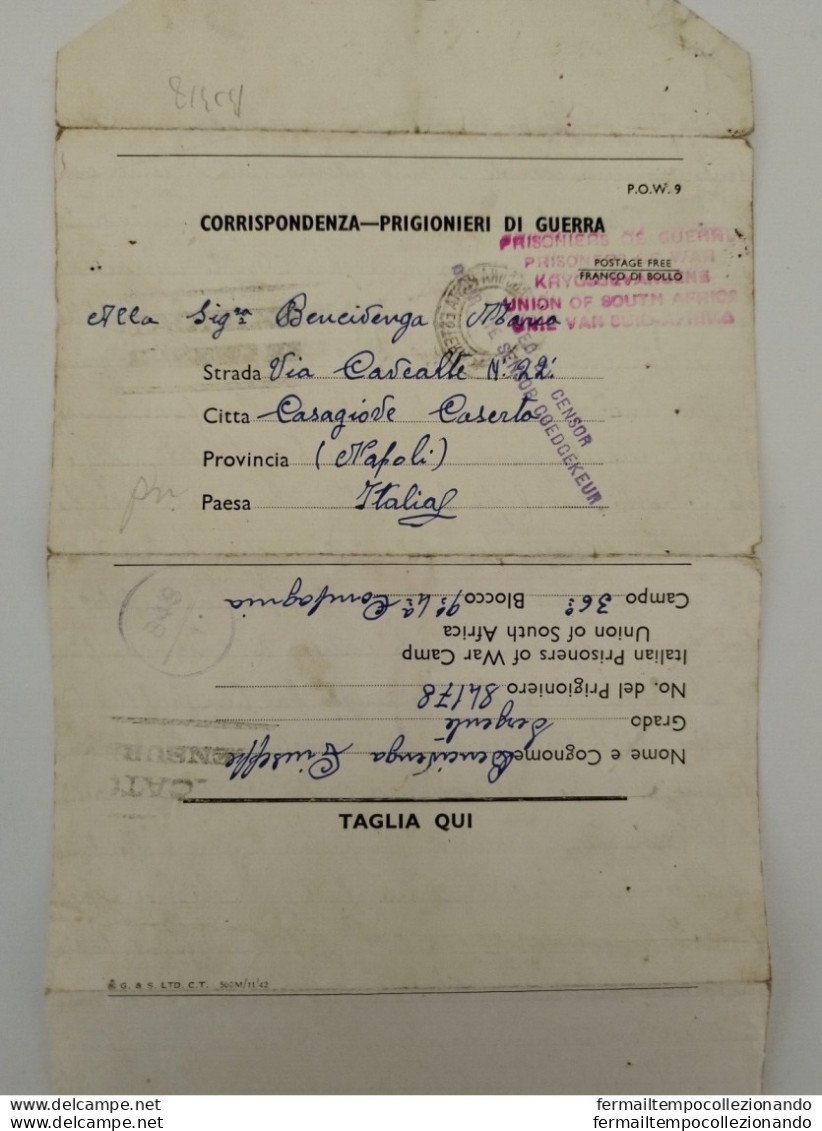 P.O.W. 9
CORRISPONDENZA—PRIGIONIERI DI GUERRA
PRISONIERS DE GUERRE
POSTAGE FREE
PRISONERS WAR
FRANCO DI BOLLO
KRYGSGEVANGENE
UNION OF SOUTH AFRICA
UNIE VAN SUID-AFRIKA
Alla Sigra Bencivenga Maria
CENSOR
SENSOR GOEDGEKEUR
Strada Via Cavealte N. 22.
Citta Casagiove Caserta
Provincia (Napoli)
Paesa Italia
Campo 36º Blocco 9º 4ª Compagnia
Union of South Africa
Italian Prisoners of War Camp
No. del Prigioniero 84178
Grado Sergente
Nome e Cognome Bencivenga Giuseppe
TAGLIA QUI
G. & S. LTD. C.T. 500M/11/42
fermailtempocollezionando fermailtempocollezionando
fermailtempocollezionando fermailtempocollezionando